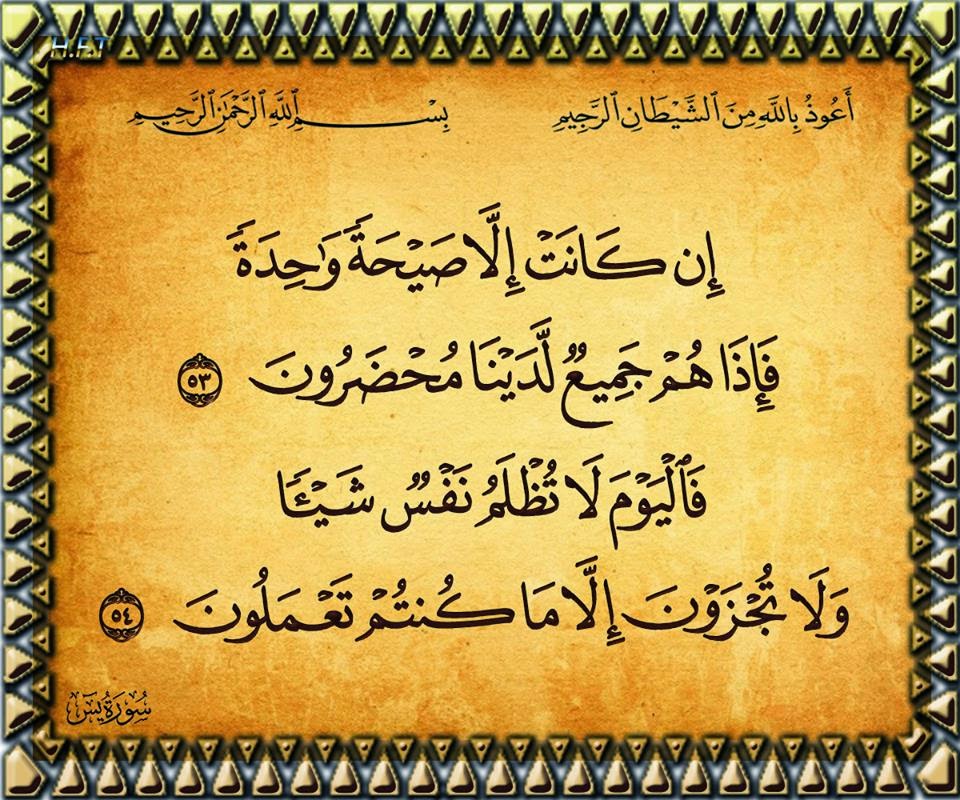 H.F.T
أَعُوذُ بِاللَّهِ مِنَ ٱلشَّيْطَانِ ٱلرَّجِيمِ بِسْمِ ٱللَّهِ ٱلرَّحْمَٰنِ ٱلرَّحِيمِ
إِن كَانَتْ إِلَّا صَيْحَةً وَٰحِدَةً
فَإِذَا هُمْ جَمِيعٌ لَّدَيْنَا مُحْضَرُونَ ٥٣
فَٱلْيَوْمَ لَا تُظْلَمُ نَفْسٌ شَيْـًٔا
وَلَا تُجْزَوْنَ إِلَّا مَا كُنتُمْ تَعْمَلُونَ ٥٤
سُورَةُ يسٓ